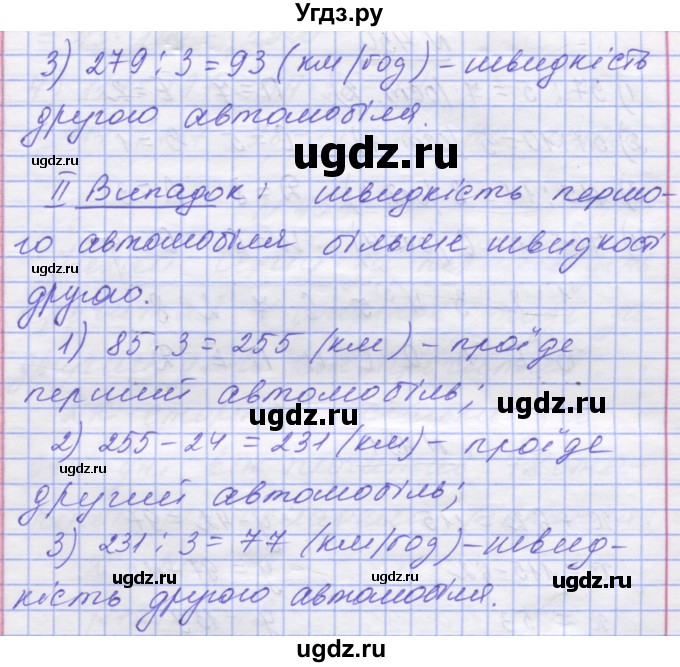 Угдз.ру
3) 279 : 3 = 93 (км/год) – швидкість
другого автомобіля.
ugdz.ru
ugdz.ru
ugdz.ru
II Випадок: швидкість першо-
го автомобіля більше швидкості
ugdz.ru
ugdz.ru
другого.
1) 85 · 3 = 255 (км) – проїде
ugdz.ru
ugdz.ru
перший автомобіль;
ugdz.ru
2) 255 – 24 = 231 (км) – проїде
ugdz.ru
другий автомобіль;
ugdz.ru
3) 231 : 3 = 77 (км/год) – швид-
ugdz.ru
ugdz.ru
кість другого автомобіля.
ugdz.ru
ugdz.ru